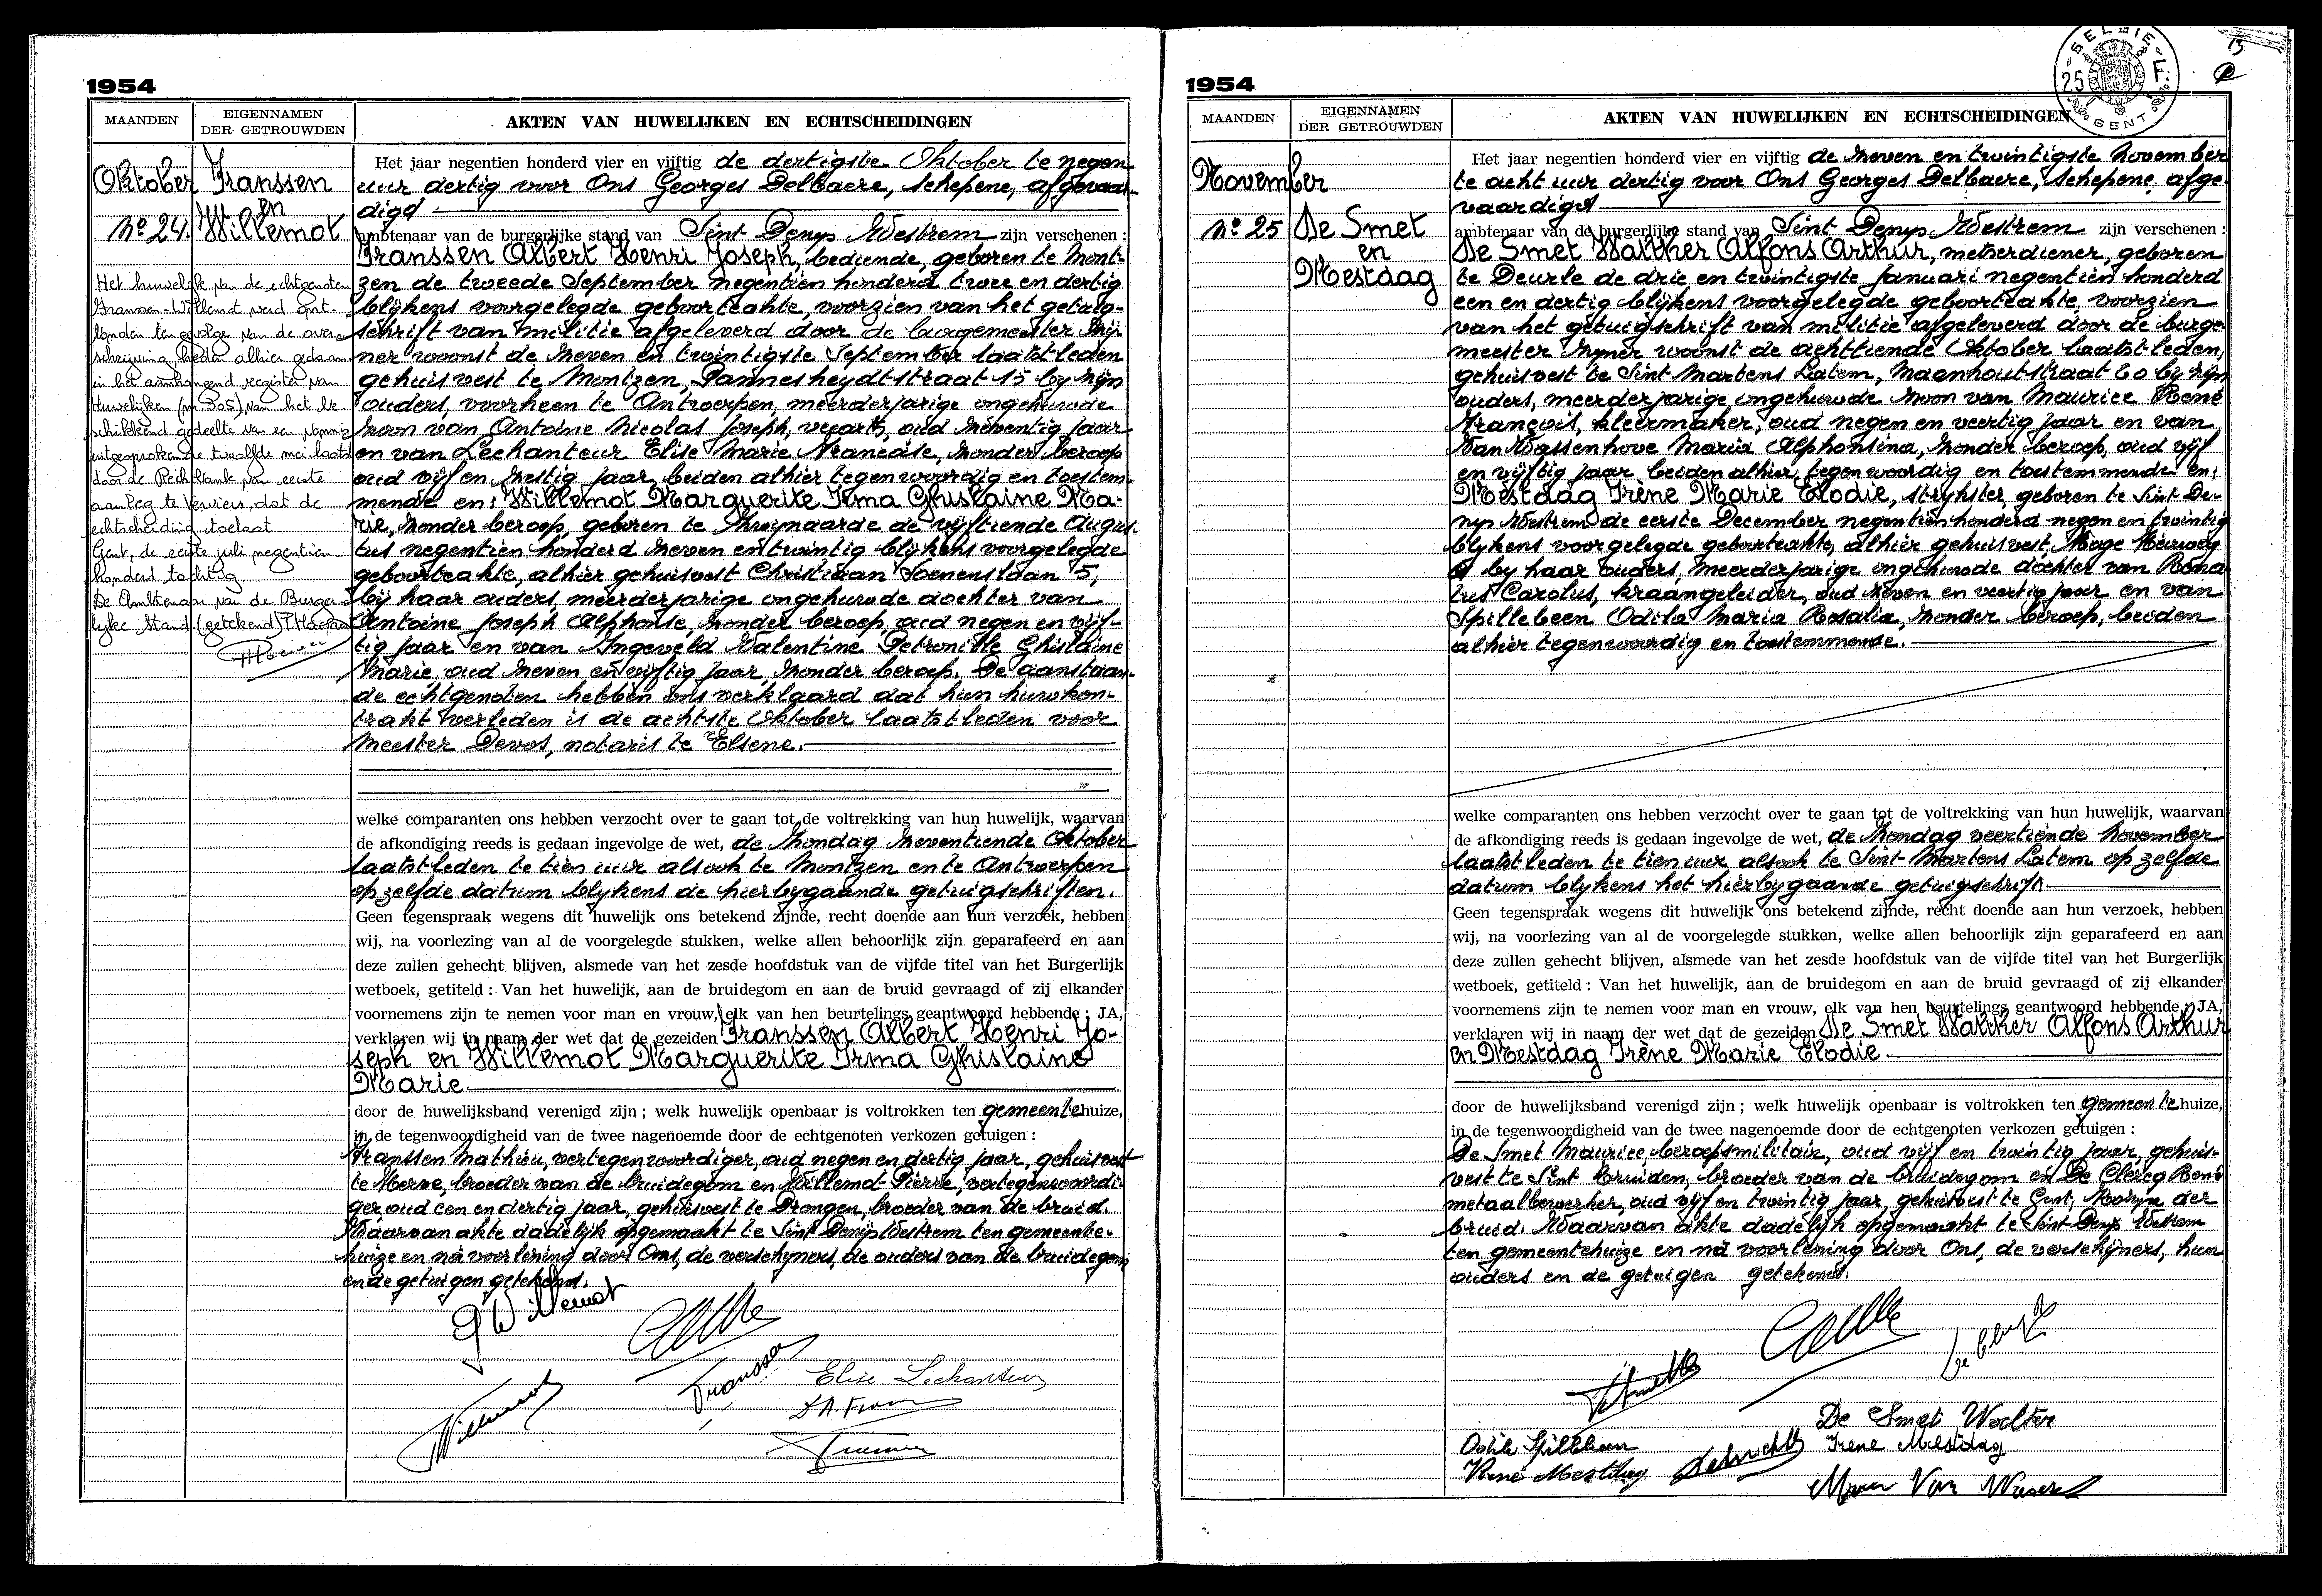 1954
MAANDEN
EIGENNAMEN
DER GETROUWDEN
AKTEN VAN HUWELIJKEN EN ECHTSCHEIDINGEN
Oktober
Nº 24.
Franssen
en
Willemot
Het huwelijk van de echtgenoten
Franssen-Willemot werd ont-
bonden ten gevolge van de over-
schrijving heden alhier gedaan
in het aanhangend register van
Huwelijken (nr 305) van het be-
schikkend gedeelte van een vonnis
uitgesproken de twaalfde mei laatst
door de Rechtbank van eerste
aanleg te Verviers, dat de
echtscheiding toelaat
Gent, de eerste juli negentien
honderd tachtig
De Ambtenaar van de Burger-
lijke Stand (getekend)
Het jaar negentien honderd vier en vijftig de dertigste Oktober te negen
uur dertig voor Ons Georges Delbaere, schepene, afgevaar-
digd
ambtenaar van de burgerlijke stand van Sint Denys Westrem zijn verschenen :
Franssen Albert Henri Joseph, bediende, geboren te Mont-
zen de tweede September negentien honderd twee en dertig
blijkens voorgelegde geboorteakte, voorzien van het getuig-
schrift van militie afgeleverd door de burgemeester zij-
ner woonst de zeven en twintigste September laatstleden
gehuisvest te Montzen, Pannesheydtstraat 15 by zijn
ouders, voorheen te Antwerpen, meerderjarige ongehuwde
zoon van Antoine Nicolas Joseph, oud zeventig jaar
en van Lechanteur Elise Marie Francoise, zonder beroep
oud vijf en zestig jaar, beiden alhier tegenwoordig en toestem-
mende en: Willemot Marguerite Irma Ghislaine Ma-
rie, zonder beroep, geboren te Zwijnaarde de vijftiende Augus-
tus negentien honderd zeven en twintig blijkens voorgelegde
geboorteakte, alhier gehuisvest Christiaan Soenenslaan 5,
bij haar ouders, meerderjarige ongehuwde dochter van
Antoine Joseph Alphonse zonder beroep, oud negen en vijf-
tig jaar en van Ingeveld Valentine Petronille Ghislaine
Marie, oud zeven en vijftig jaar, zonder beroep. De aanstaan-
de echtgenoten hebben ons verklaard dat hun huwkon-
trakt verleden is de achtste Oktober laatstleden voor
Meester Devos, notaris te Elsene.
welke comparanten ons hebben verzocht over te gaan tot de voltrekking van hun huwelijk, waarvan
de afkondiging reeds is gedaan ingevolge de wet, de Zondag zeventiende Oktober
laatstleden te tien uur alsook te Montzen en te Antwerpen
op zelfde datum blijkens de hierbygaande getuigschriften.
Geen tegenspraak wegens dit huwelijk ons betekend zijnde, recht doende aan hun verzoek, hebben
wij, na voorlezing van al de voorgelegde stukken, welke allen behoorlijk zijn geparafeerd en aan
deze zullen gehecht blijven, alsmede van het zesde hoofdstuk van de vijfde titel van het Burgerlijk
wetboek, getiteld : Van het huwelijk, aan de bruidegom en aan de bruid gevraagd of zij elkander
voornemens zijn te nemen voor man en vrouw, elk van hen beurtelings geantwoord hebbende : JA,
verklaren wij in naam der wet dat de gezeiden Franssen Albert Henri Jo-
seph en Willemot Marguerite Irma Ghislaine
Marie
door de huwelijksband verenigd zijn ; welk huwelijk openbaar is voltrokken ten gemeentehuize,
in de tegenwoordigheid van de twee nagenoemde door de echtgenoten verkozen getuigen :
Franssen Mathieu, vertegenwoordiger, oud negen en dertig jaar, gehuisvest
te Herve, broeder van de bruidegom en Willemot Pierre, vertegenwoordi-
ger oud een en dertig jaar, gehuisvest te Drongen, broeder van de bruid.
Waarvan akte dadelijk opgemaakt te Sint Denijs Westrem ten gemeente-
huize en na voorlezing door Ons, de verschijners, de ouders van de bruidegom
en de getuigen getekend.
Willemot
Franssen
Elise Lechanteur
1954
BELGIE
25 F.
GENT
13
MAANDEN
EIGENNAMEN
DER GETROUWDEN
AKTEN VAN HUWELIJKEN EN ECHTSCHEIDINGEN
November
Nº 25
De Smet
en
Mestdag
Het jaar negentien honderd vier en vijftig de zeven en twintigste November
te acht uur dertig voor Ons Georges Delbaere, schepene afge-
vaardigd
ambtenaar van de burgerlijke stand van Sint Denys Westrem zijn verschenen :
De Smet Walther Alfons Arthur, metserdiener, geboren
te Deurle de drie en twintigste Januari negentien honderd
een en dertig blijkens voorgelegde geboorteakte, voorzien
van het getuigschrift van militie afgeleverd door de burge-
meester zijner woonst de achttiende Oktober laatstleden,
gehuisvest te Sint Martens Latem, Maenhoutstraat 60 by zijn
ouders, meerderjarige ongehuwde zoon van Maurice René
François, kleermaker, oud negen en veertig jaar en van
Van Wassenhove Maria Alphonsina, zonder beroep, oud vijf
en vijftig jaar beiden alhier tegenwoordig en toestemmende en:
Mestdag Irène Marie Elodie, strijkster, geboren te Sint De-
nys Westrem de eerste December negentien honderd negen en twintig
blijkens voorgelegde geboorteakte, alhier gehuisvest, Hoge Heirweg
by haar ouders, meerderjarige ongehuwde dochter van Rena-
tus Carolus, kraangeleider, oud zeven en veertig jaar en van
Spillebeen Odila Maria Rosalia, zonder beroep, beiden
alhier tegenwoordig en toestemmende.
welke comparanten ons hebben verzocht over te gaan tot de voltrekking van hun huwelijk, waarvan
de afkondiging reeds is gedaan ingevolge de wet, de Zondag veertiende November
laatstleden te tien uur alsook te Sint Martens Latem op zelfde
datum blijkens het hierbygaande getuigschrift
Geen tegenspraak wegens dit huwelijk ons betekend zijnde, recht doende aan hun verzoek, hebben
wij, na voorlezing van al de voorgelegde stukken, welke allen behoorlijk zijn geparafeerd en aan
deze zullen gehecht blijven, alsmede van het zesde hoofdstuk van de vijfde titel van het Burgerlijk
wetboek, getiteld : Van het huwelijk, aan de bruidegom en aan de bruid gevraagd of zij elkander
voornemens zijn te nemen voor man en vrouw, elk van hen beurtelings geantwoord hebbende : JA,
verklaren wij in naam der wet dat de gezeiden De Smet Walther Alfons Arthur
en Mestdag Irène Marie Elodie
door de huwelijksband verenigd zijn ; welk huwelijk openbaar is voltrokken ten gemeentehuize,
in de tegenwoordigheid van de twee nagenoemde door de echtgenoten verkozen getuigen :
De Smet Maurice beroepsmilitair, oud vijf en twintig jaar, gehuis-
vest te Sint Truiden, broeder van de bruidegom en De Clercq René
metaalbewerker, oud vijf en twintig jaar, gehuisvest te Gent, Kozijn der
bruid. Waarvan akte dadelijk opgemaakt te Sint Denijs Westrem
ten gemeentehuize en na voorlezing door Ons, de verschijners, hun
ouders en de getuigen getekend.
De Smet Walter
Odile Spillebeen
Irene Mestdag
René Mestdag